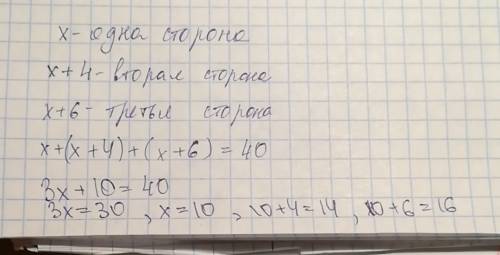 x - одна сторона
x+4 - вторая сторона
x+6 - третья сторона
x+(x+4)+(x+6)=40
3x+10=40
3x=30, x=10, 10+4=14, 10+6=16